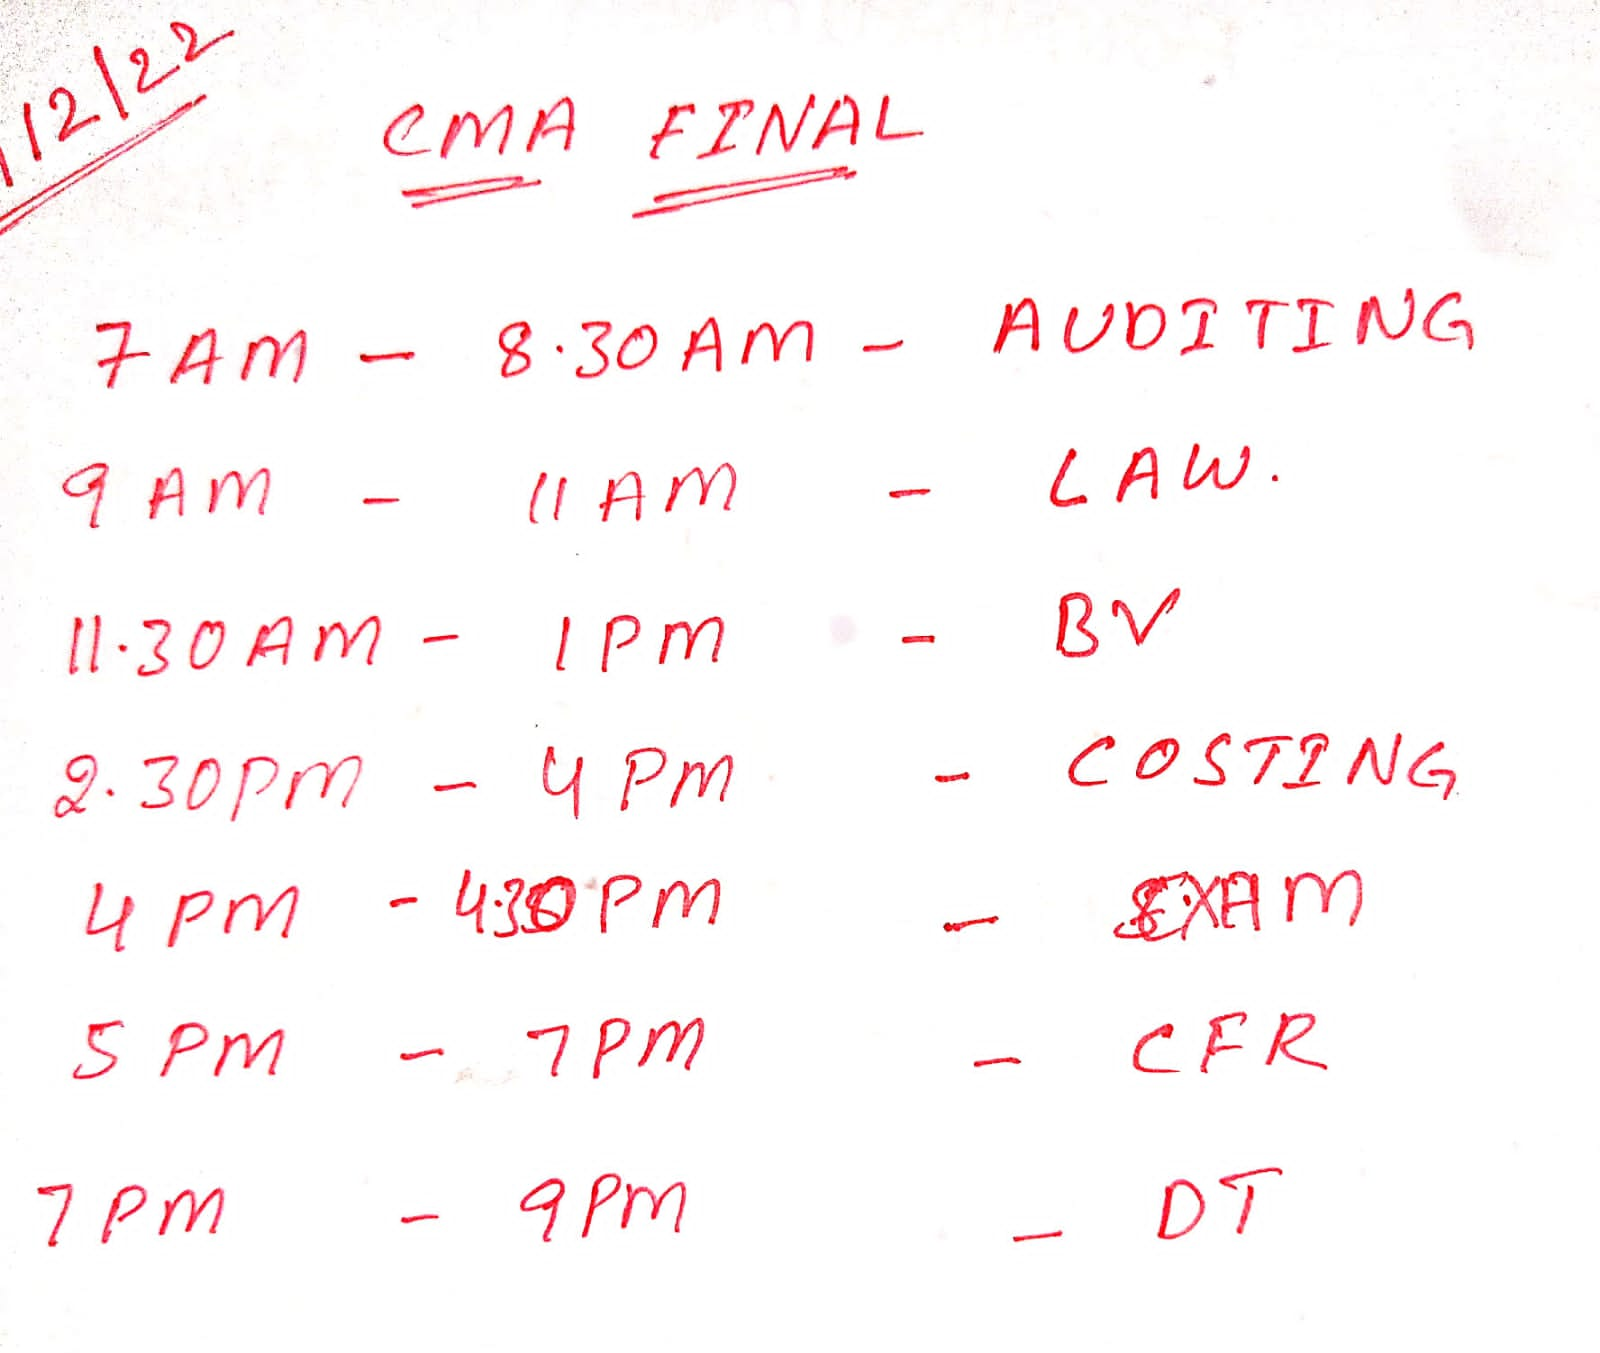 12/22
CMA FINAL
7 AM - 8.30 AM - AUDITING
9 AM - 11 AM - LAW.
11.30 AM - 1 PM - BV
2.30 PM - 4 PM - COSTING
4 PM - 4.30 PM - EXAM
5 PM - 7 PM - CFR
7 PM - 9 PM - DT